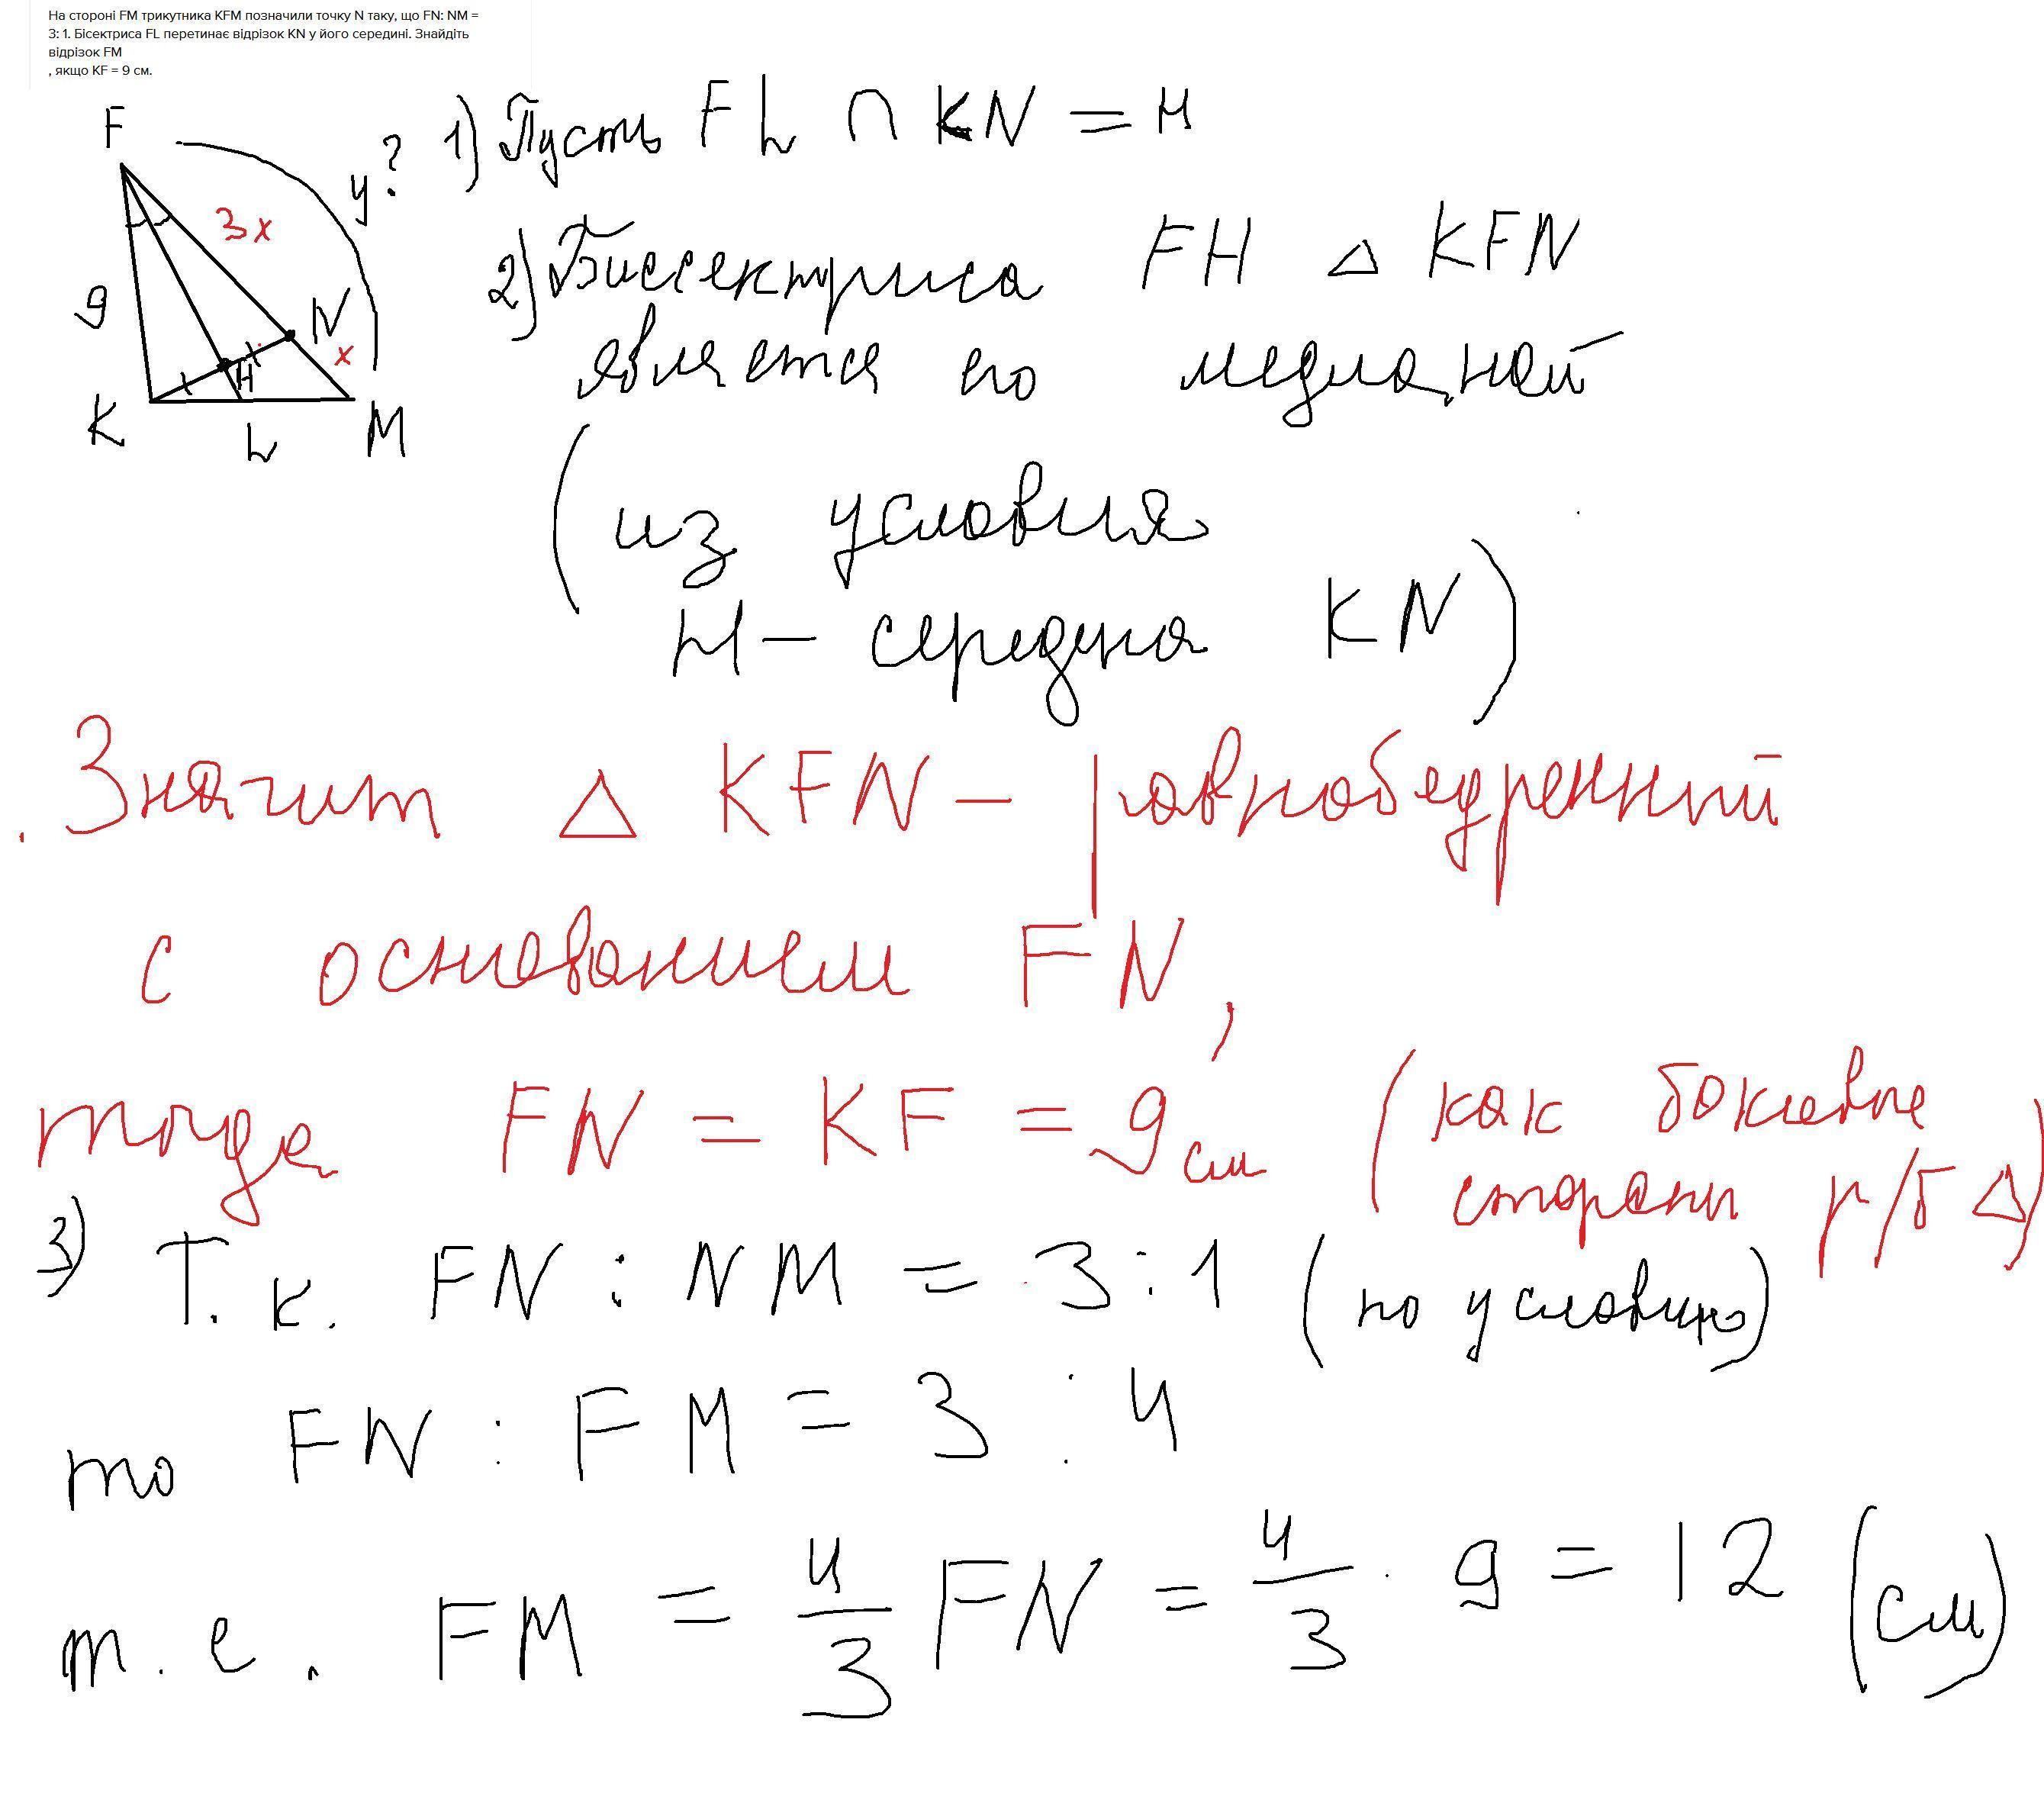 На стороні FM трикутника KFM позначили точку N таку, що FN: NM =
3: 1. Бісектриса FL перетинає відрізок KN у його середині. Знайдіть
відрізок FM
, якщо KF = 9 см.
F
y?
3x
9
N
x
H
K
L
M
1) Пусть FL ∩ KN = H
2) Биссектриса FH △ KFN
является его медианой
(из условия
H - середина KN)
Значит △ KFN - равнобедренный
с основанием FN,
тогда FN = KF = 9 см (как боковые
стороны р/б △)
3) Т. к. FN : NM = 3 : 1 (по условию)
то FN : FM = 3 : 4
т. е. FM = 4/3 FN = 4/3 · 9 = 12 (см)